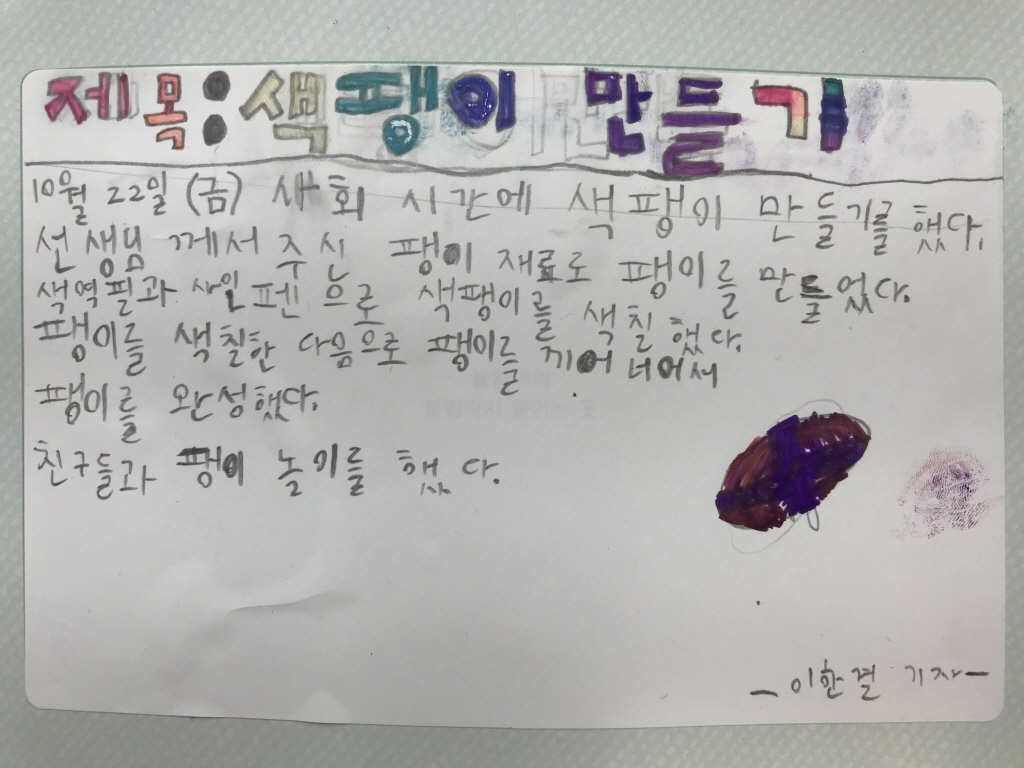 제목:색팽이 만들기
10월 22일 (금) 사회 시간에 색팽이 만들기를 했다.
선생님 께서 주신 팽이 재료로 팽이를 만들었다.
색역필과 사인펜으로 색팽이를 색칠했다.
팽이를 색칠한 다음으로 팽이를 끼어 너어서
팽이를 완성했다.
친구들과 팽이 놀이를 했다.
- 이한결 기자-